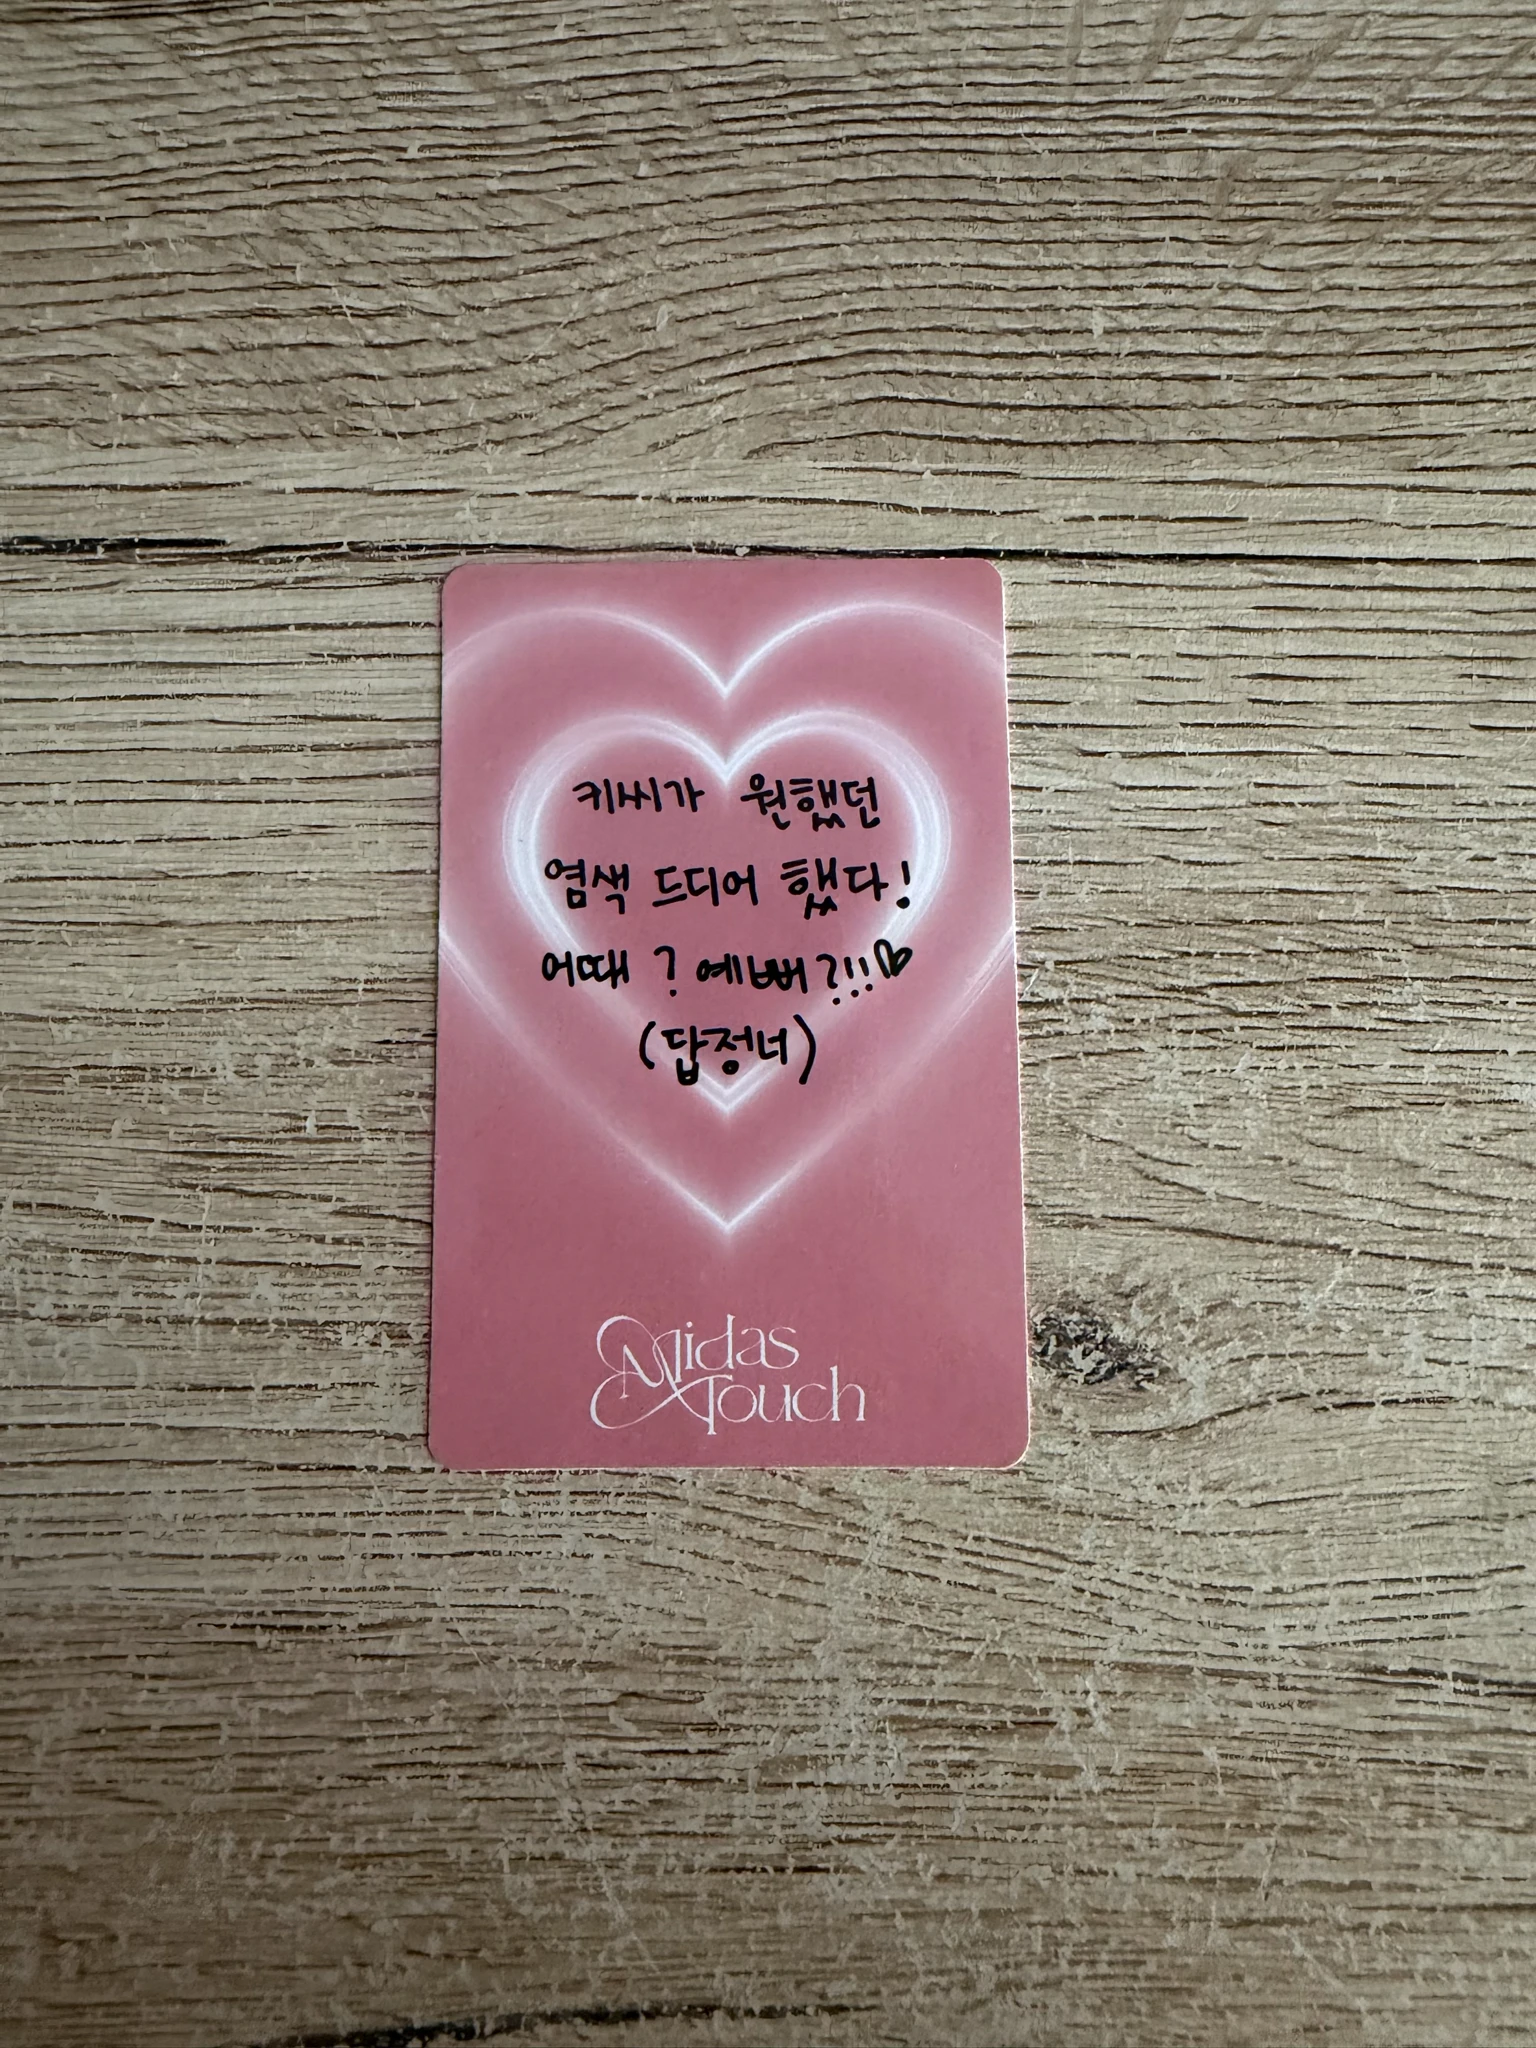 키씨가 원했던
염색 드디어 했다!
어때? 예뻐?!!♡
(답정너)
Midas
Touch